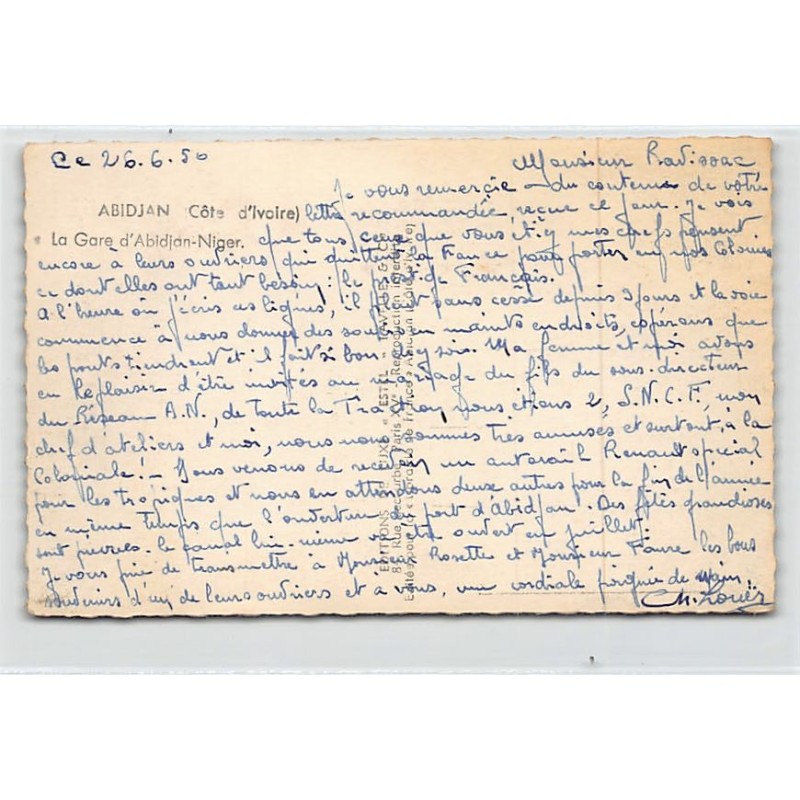 Le 26.6.50
Monsieur Ravissac
Je vous remercie du contenu de votre
ABIDJAN (Côte d'Ivoire)
lettre recommandée, reçue ce jour. Je vois
La Gare d'Abidjan-Niger.
que tous ceux que vous et mes chefs pensent
encore à leurs ouvriers qui quittent la France pour porter en nos Colonies
ce dont elles ont tant besoin: le de Français.
A l'heure où j'écris ces lignes, il pleut sans cesse depuis 3 jours et la voie
commence à nous donner des soucis en maints endroits, espérons que
les ponts tiendront et il fait si bon le soir. Ma femme et moi avons
eu le plaisir d'être invités au mariage du fils du sous-directeur
du Réseau A.N., de toute la Traction nous étions 2, S.N.C.F., mon
chef d'ateliers et moi, nous nous sommes très amusés et surtout, à la
Coloniale! - Nous venons de recevoir un autorail Renault spécial
pour les tropiques et nous en attendons deux autres pour la fin de l'année
en même temps que l'ouverture du port d'Abidjan. Des fêtes grandioses
sont prévues. le canal lui-même sera ouvert en juillet.
Je vous prie de transmettre à Monsieur Rosette et Monsieur Faure les bons
souvenirs d'un de leurs ouvriers et à vous, une cordiale poignée de main.
EDITIONS DE LUXE "ESTEL" LAVELLE & Cie
8, Rue Lecourbe, Paris XVe Reproduction interdite